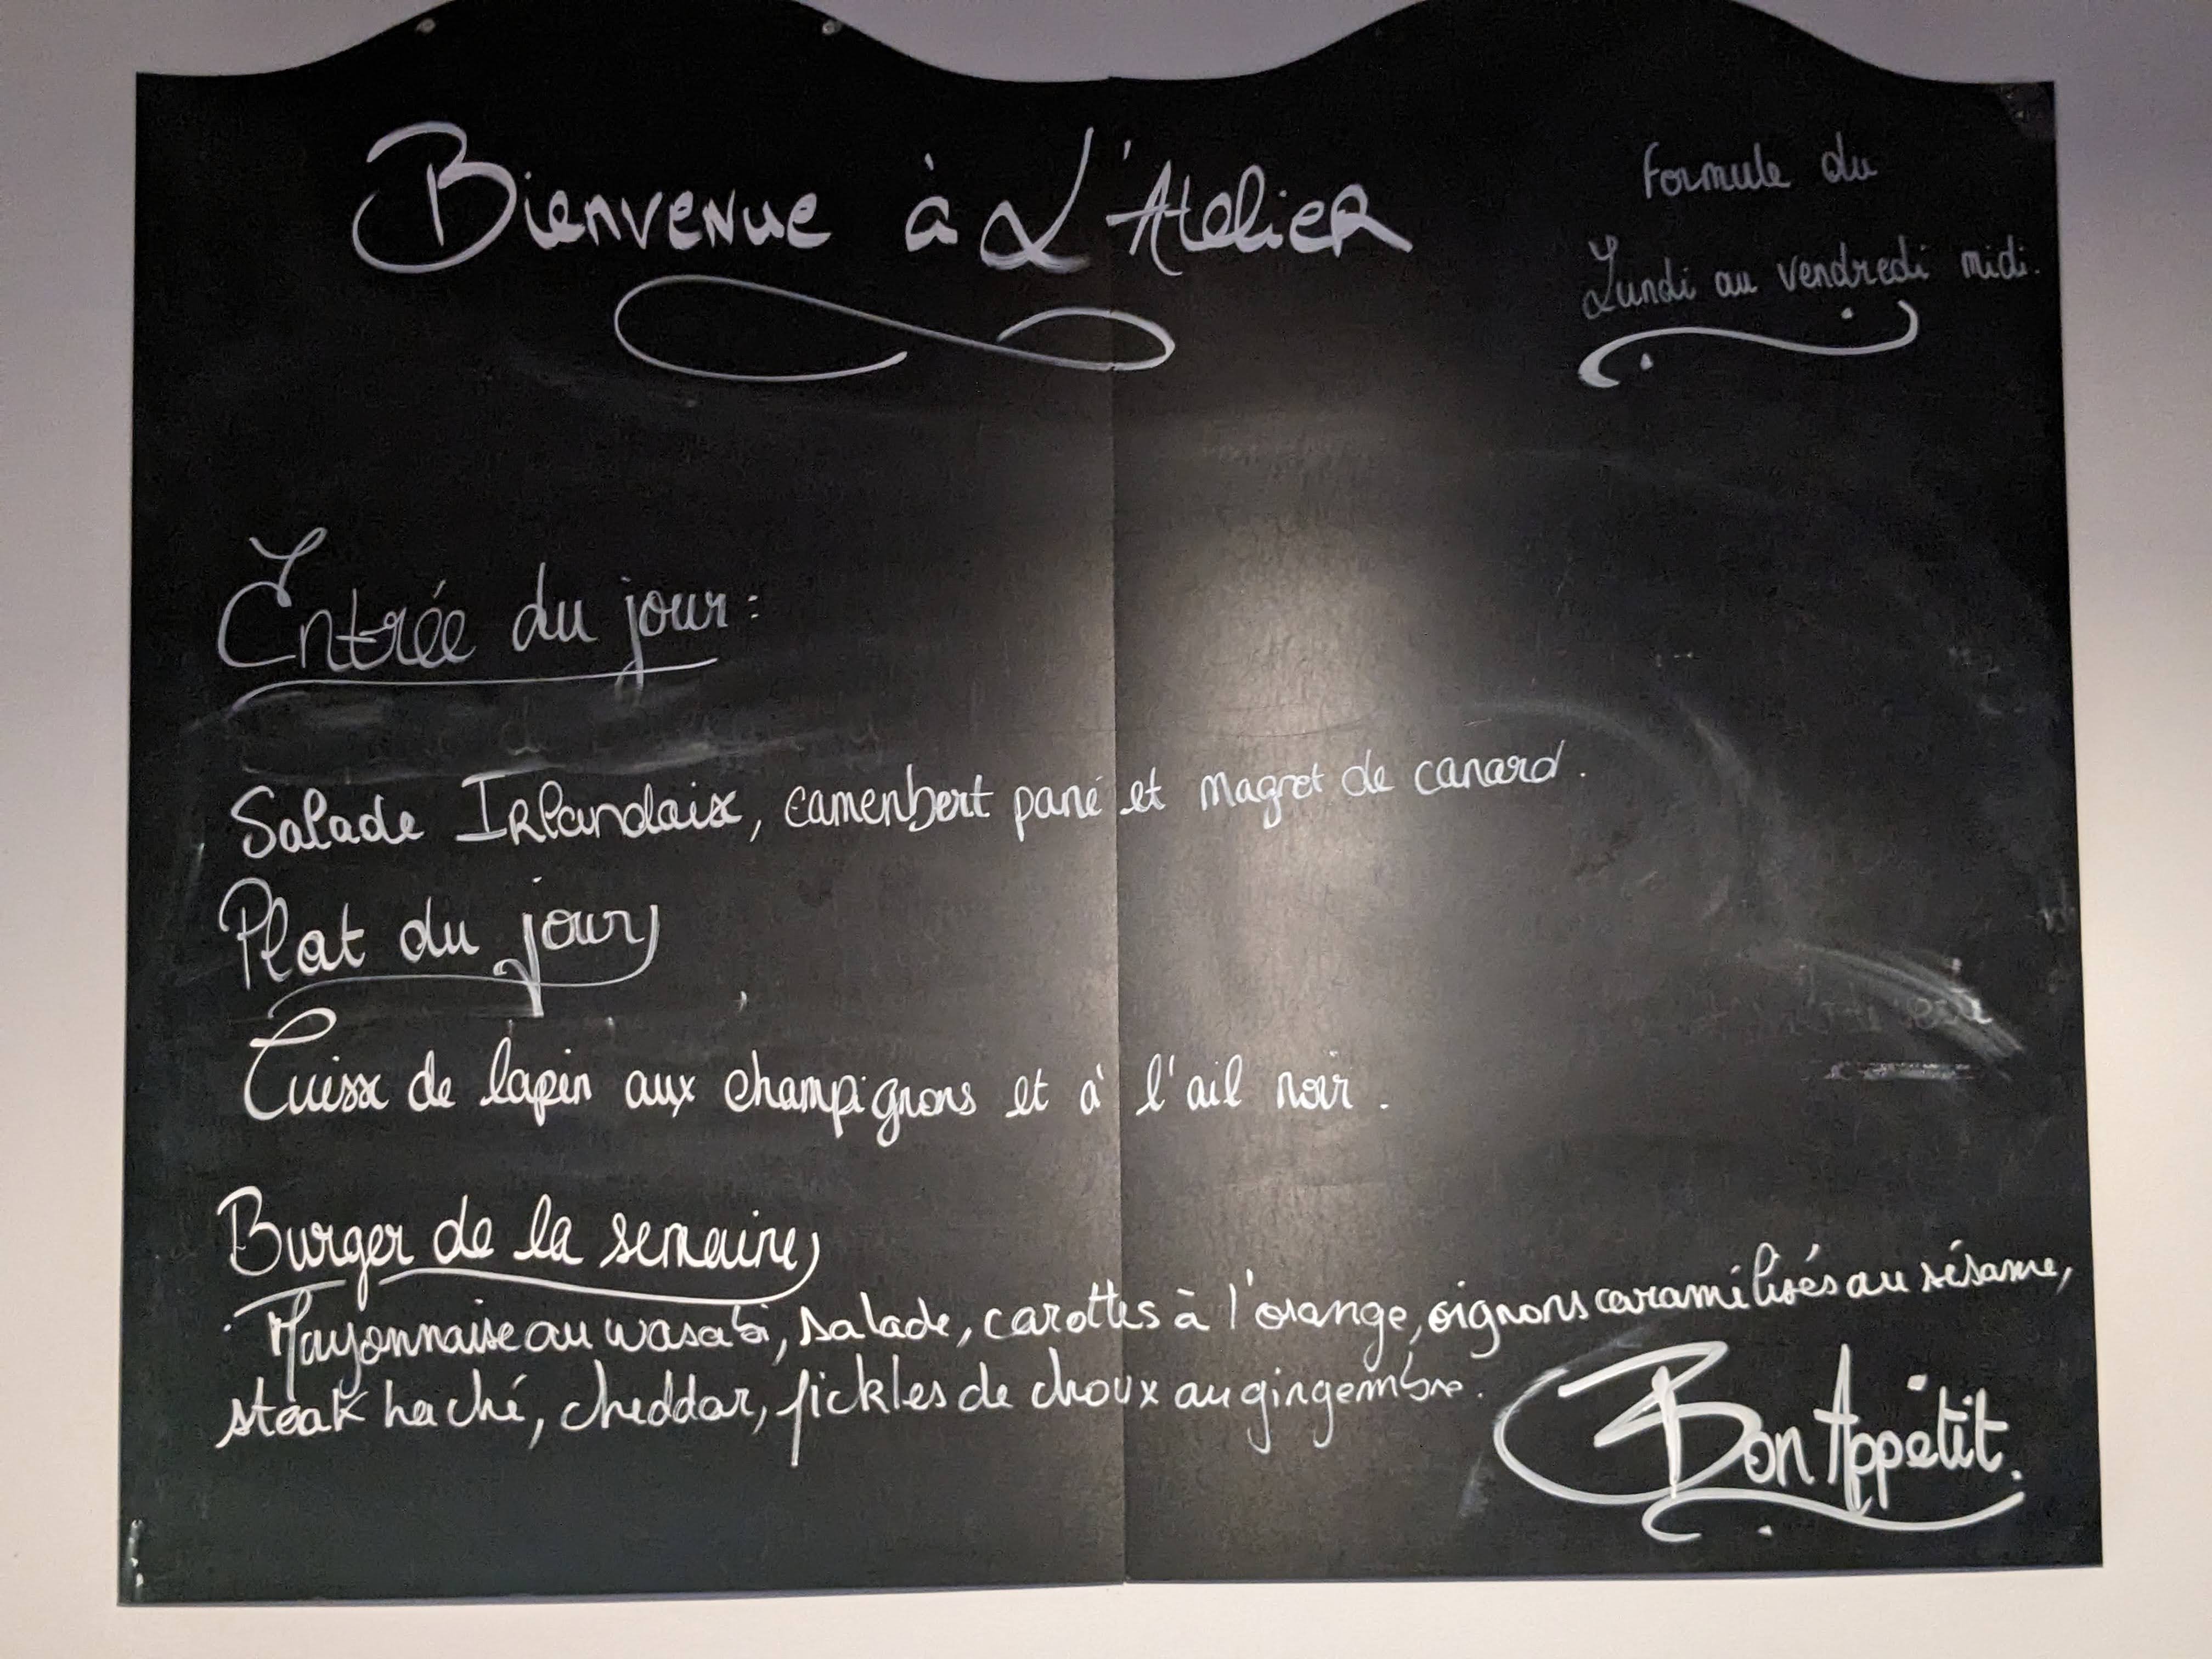 Bienvenue à L'Atelier
Formule du
Lundi au vendredi midi.
Entrée du jour :
Salade Irlandaix, camenbert pané et magret de canard.
Plat du jour
Cuisse de lapin aux champignons et à l'ail noir.
Burger de la semaine
Mayonnaise au wasabi, salade, carottes à l'orange, oignons caramilisés au sésame,
steak haché, cheddar, pickles de choux au gingembre.
Bon Appétit.